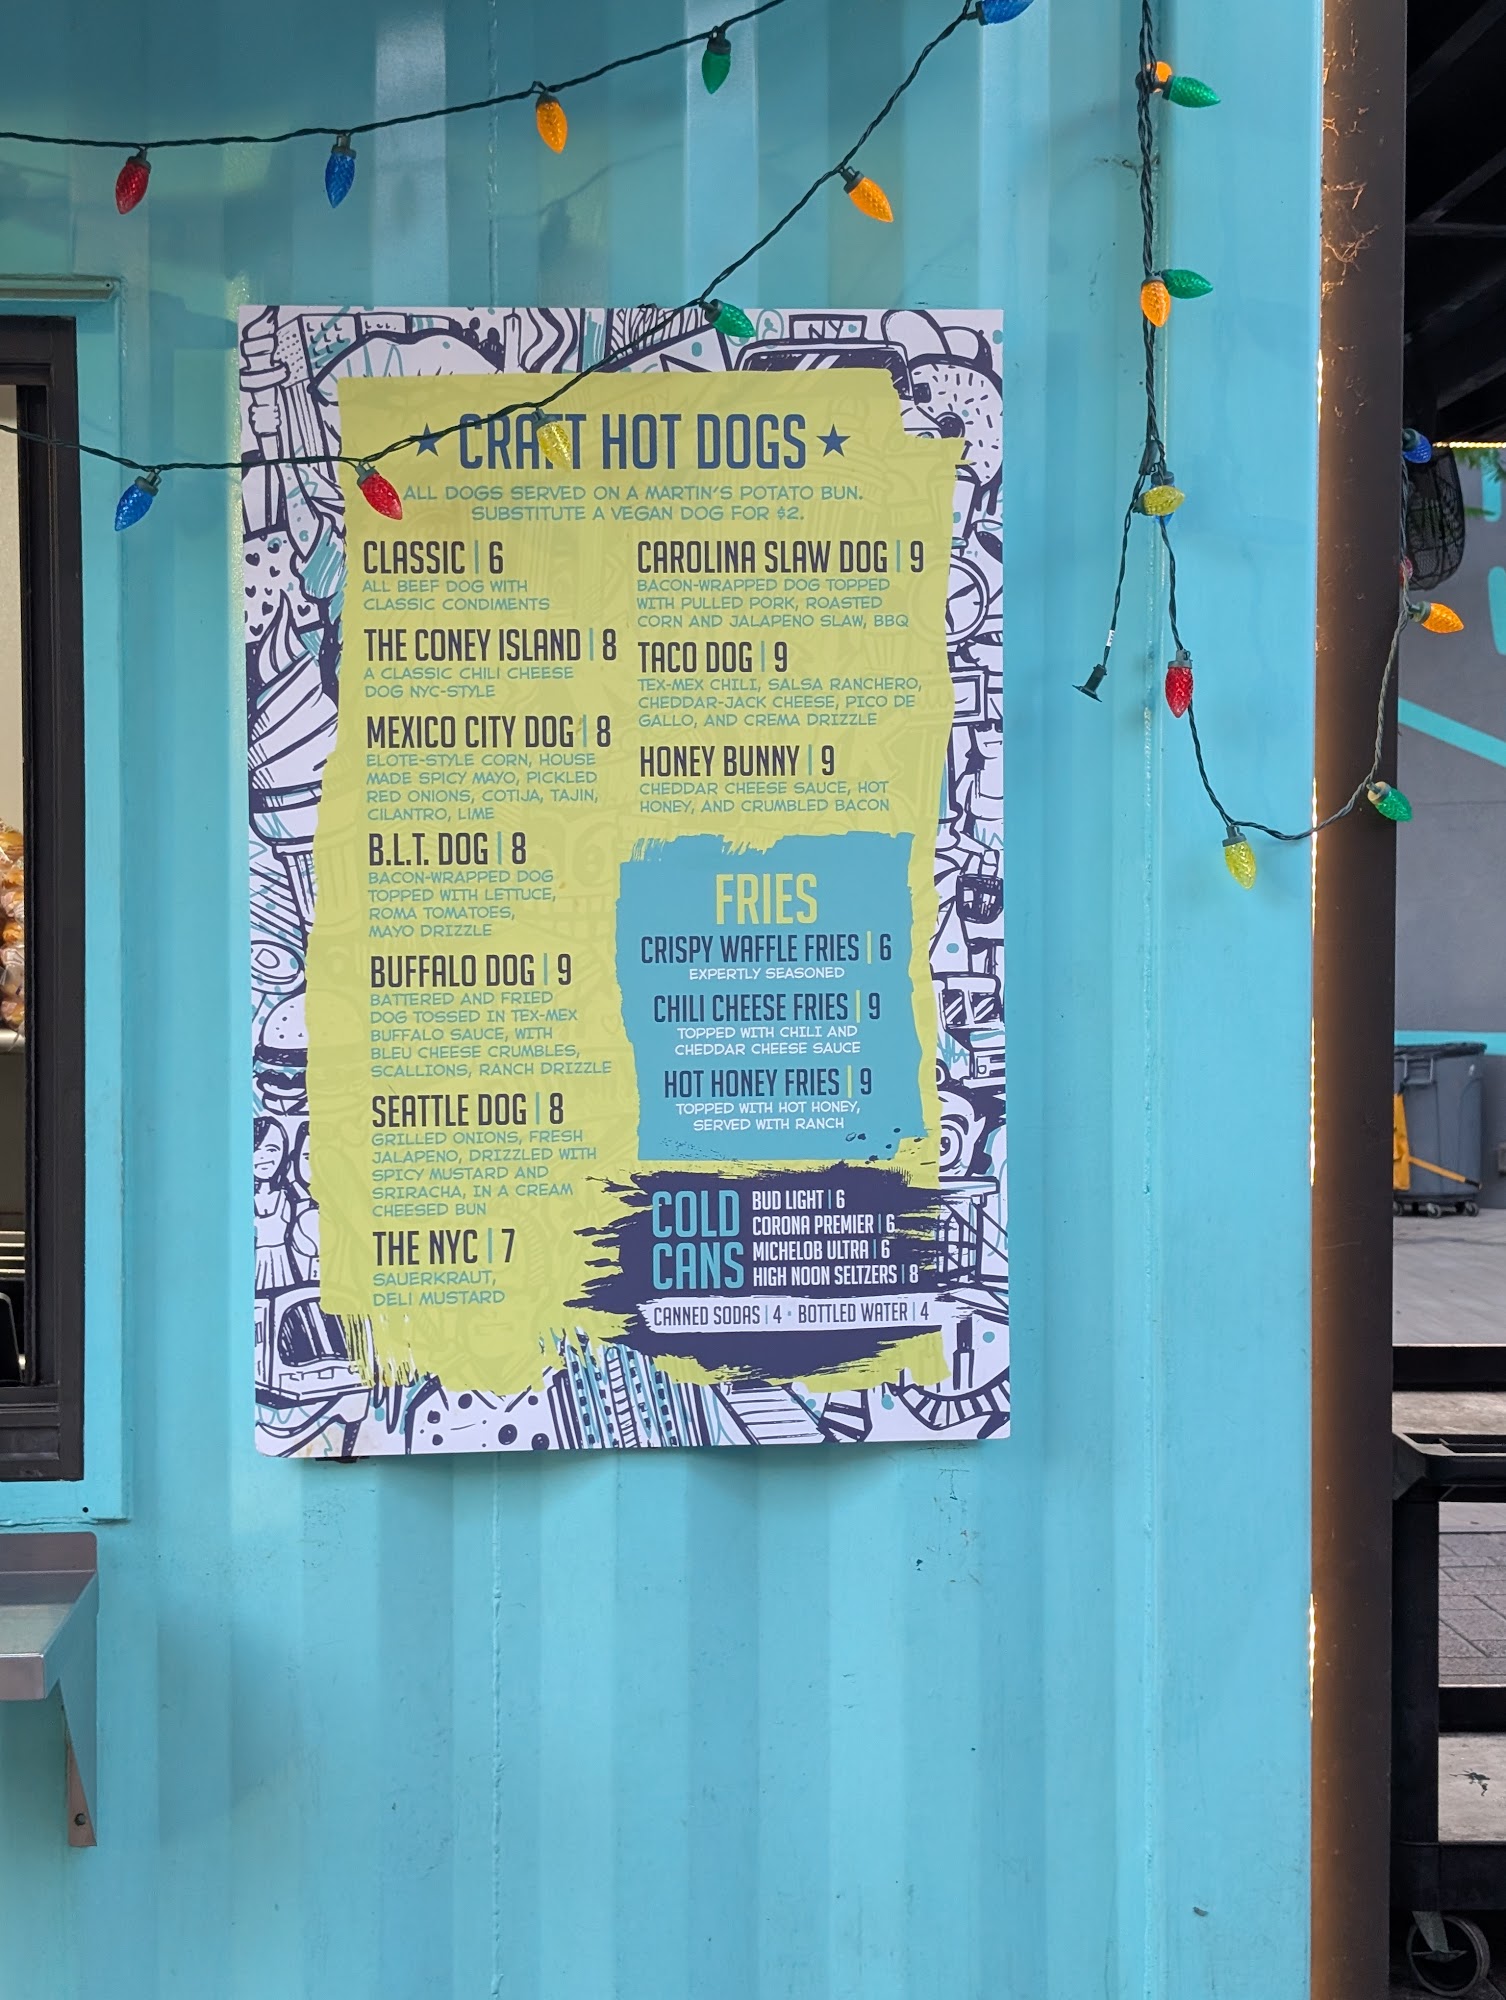 NY
★ CRAFT HOT DOGS ★
ALL DOGS SERVED ON A MARTIN'S POTATO BUN.
SUBSTITUTE A VEGAN DOG FOR $2.
CLASSIC | 6
ALL BEEF DOG WITH
CLASSIC CONDIMENTS
THE CONEY ISLAND | 8
A CLASSIC CHILI CHEESE
DOG NYC-STYLE
MEXICO CITY DOG | 8
ELOTE-STYLE CORN, HOUSE
MADE SPICY MAYO, PICKLED
RED ONIONS, COTIJA, TAJIN,
CILANTRO, LIME
B.L.T. DOG | 8
BACON-WRAPPED DOG
TOPPED WITH LETTUCE,
ROMA TOMATOES,
MAYO DRIZZLE
BUFFALO DOG | 9
BATTERED AND FRIED
DOG TOSSED IN TEX-MEX
BUFFALO SAUCE, WITH
BLEU CHEESE CRUMBLES,
SCALLIONS, RANCH DRIZZLE
SEATTLE DOG | 8
GRILLED ONIONS, FRESH
JALAPENO, DRIZZLED WITH
SPICY MUSTARD AND
SRIRACHA, IN A CREAM
CHEESED BUN
THE NYC | 7
SAUERKRAUT,
DELI MUSTARD
CAROLINA SLAW DOG | 9
BACON-WRAPPED DOG TOPPED
WITH PULLED PORK, ROASTED
CORN AND JALAPENO SLAW, BBQ
TACO DOG | 9
TEX-MEX CHILI, SALSA RANCHERO,
CHEDDAR-JACK CHEESE, PICO DE
GALLO, AND CREMA DRIZZLE
HONEY BUNNY | 9
CHEDDAR CHEESE SAUCE, HOT
HONEY, AND CRUMBLED BACON
FRIES
CRISPY WAFFLE FRIES | 6
EXPERTLY SEASONED
CHILI CHEESE FRIES | 9
TOPPED WITH CHILI AND
CHEDDAR CHEESE SAUCE
HOT HONEY FRIES | 9
TOPPED WITH HOT HONEY,
SERVED WITH RANCH
COLD
CANS
BUD LIGHT | 6
CORONA PREMIER | 6
MICHELOB ULTRA | 6
HIGH NOON SELTZERS | 8
CANNED SODAS | 4 • BOTTLED WATER | 4